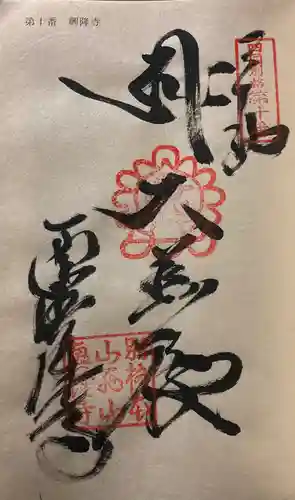 第十番 興隆寺
四国別格第十番
大悲殿
西山興隆寺
別格本
山西山
興隆寺